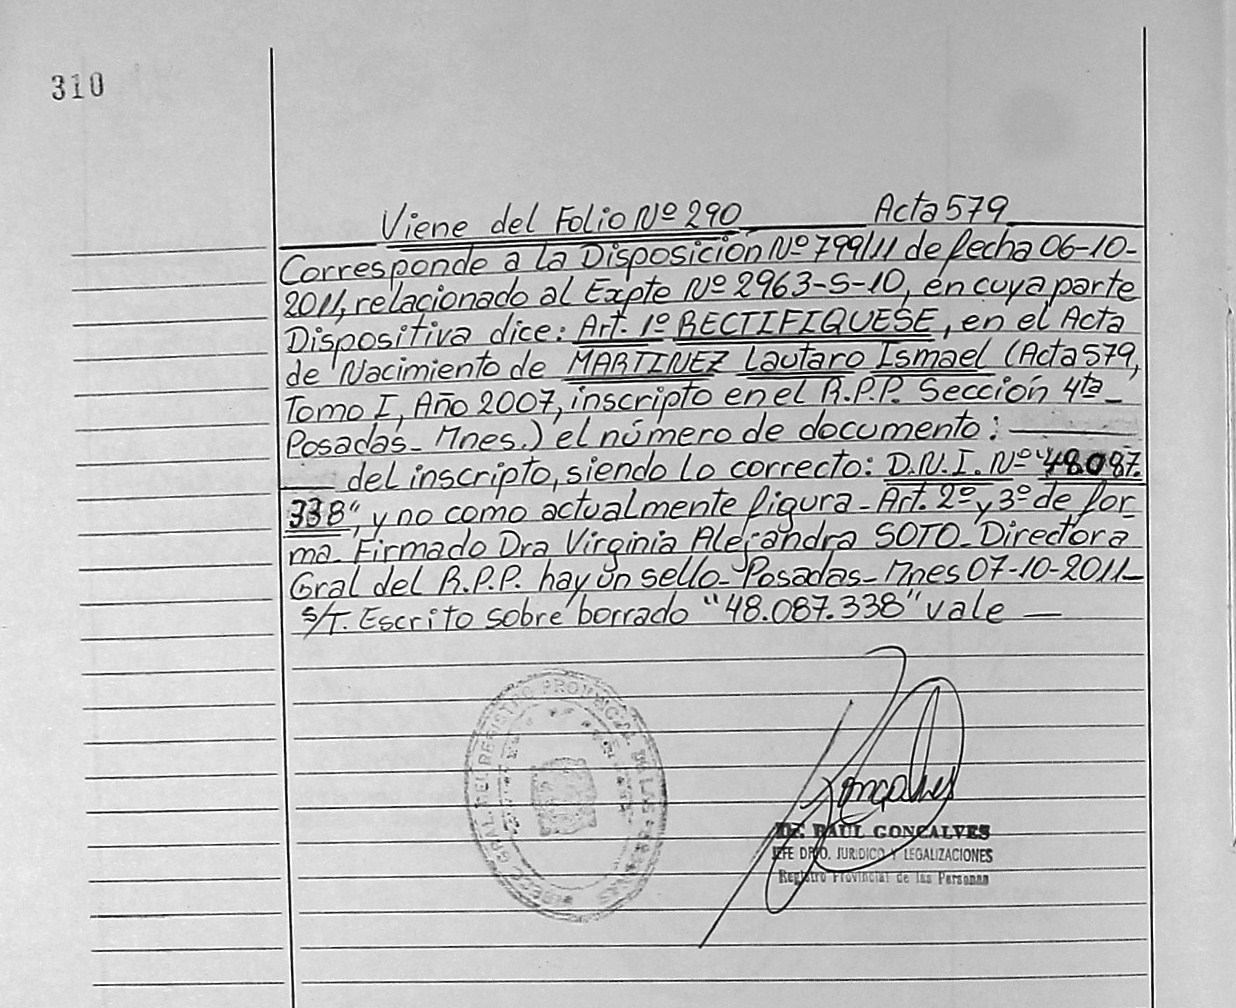 310
Viene del Folio Nº 290 Acta 579
Corresponde a la Disposición Nº 799/11 de fecha 06-10-
2011, relacionado al Expte Nº 2963-S-10, en cuya parte
Dispositiva dice: Art. 1º RECTIFIQUESE, en el Acta
de Nacimiento de MARTINEZ Lautaro Ismael (Acta 579,
Tomo I, Año 2007, inscripto en el R.P.P. Sección 4ta_
Posadas_ Mnes.) el número de documento: ——
del inscripto, siendo lo correcto: D.N.I. Nº "48.087.
338", y no como actualmente figura_ Art. 2º y 3º de for_
ma_ Firmado Dra Virginia Alejandra SOTO_ Directora
Gral del R.P.P. hay un sello_ Posadas_ Mnes 07-10-2011_
S/T. Escrito sobre borrado "48.087.338" vale —
DIREC. GRAL. DEL REGISTRO PROVINCIAL DE LAS PERSONAS
Gonçalves
Dr. RAUL GONÇALVES
JEFE DPTO. JURIDICO Y LEGALIZACIONES
Registro Provincial de las Personas